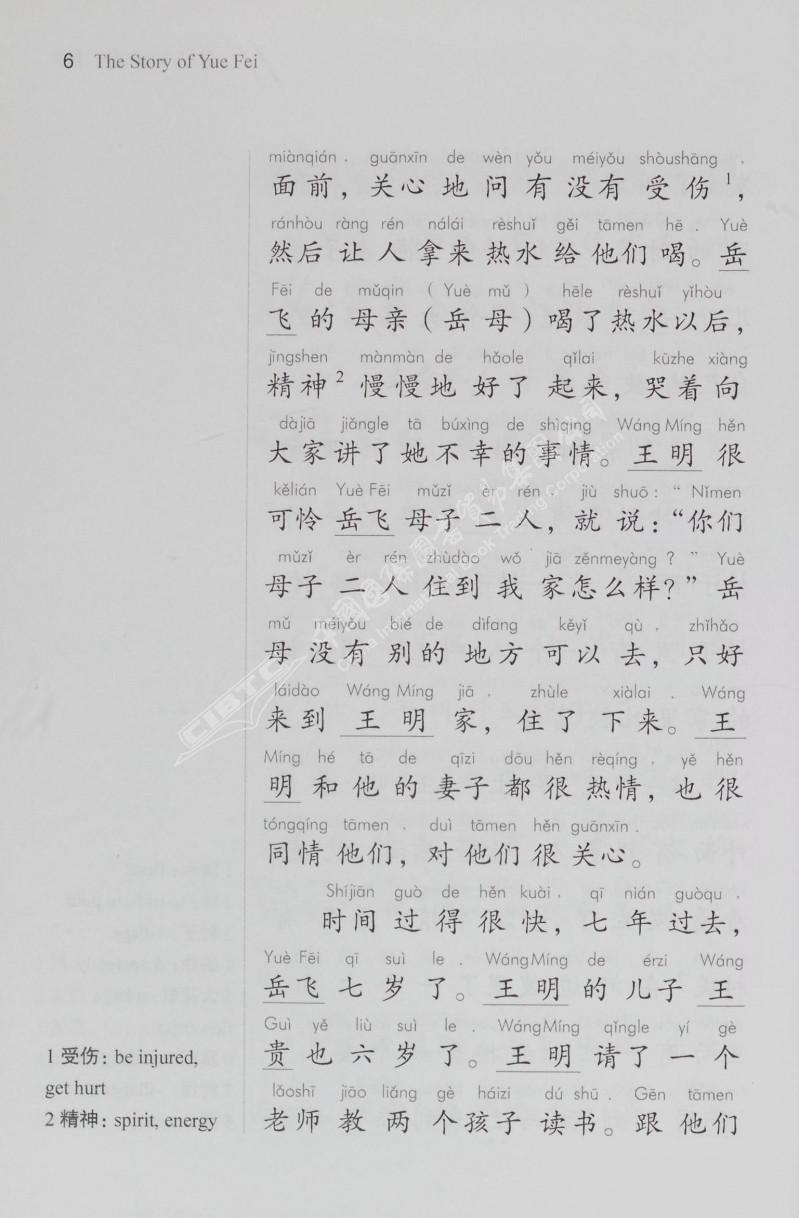 6 The Story of Yue Fei
miànqián, guānxīn de wèn yǒu méiyǒu shòushāng,
面前，关心地问有没有受伤1，
ránhòu ràng rén nálái rèshuǐ gěi tāmen hē. Yuè
然后让人拿来热水给他们喝。岳
Fēi de mǔqin (Yuè mǔ) hēle rèshuǐ yǐhòu
飞的母亲（岳母）喝了热水以后，
jīngshen mànmàn de hǎole qǐlai kūzhe xiàng
精神2慢慢地好了起来，哭着向
dàjiā jiǎngle tā búxìng de shìqing Wáng Míng hěn
大家讲了她不幸的事情。王明很
kělián Yuè Fēi mǔzǐ èr rén, jiù shuō: “Nǐmen
可怜岳飞母子二人，就说：“你们
mǔzǐ èr rén zhùdào wǒ jiā zěnmeyàng?” Yuè
母子二人住到我家怎么样？”岳
mǔ méiyǒu bié de dìfang kěyǐ qù, zhǐhǎo
母没有别的地方可以去，只好
láidào Wáng Míng jiā, zhùle xiàlai. Wáng
来到王明家，住了下来。王
Míng hé tā de qīzi dōu hěn rèqíng, yě hěn
明和他的妻子都很热情，也很
tóngqíng tāmen, duì tāmen hěn guānxīn.
同情他们，对他们很关心。
Shíjiān guò de hěn kuài, qī nián guòqu,
时间过得很快，七年过去，
Yuè Fēi qī suì le. Wáng Míng de érzi Wáng
岳飞七岁了。王明的儿子王
Guì yě liù suì le. Wáng Míng qǐngle yí gè
贵也六岁了。王明请了一个
lǎoshī jiāo liǎng gè háizi dú shū. Gēn tāmen
老师教两个孩子读书。跟他们
1 受伤: be injured,
get hurt
2 精神: spirit, energy
CIBTC 中国国际图书贸易集团公司
China International Book Trading Corporation